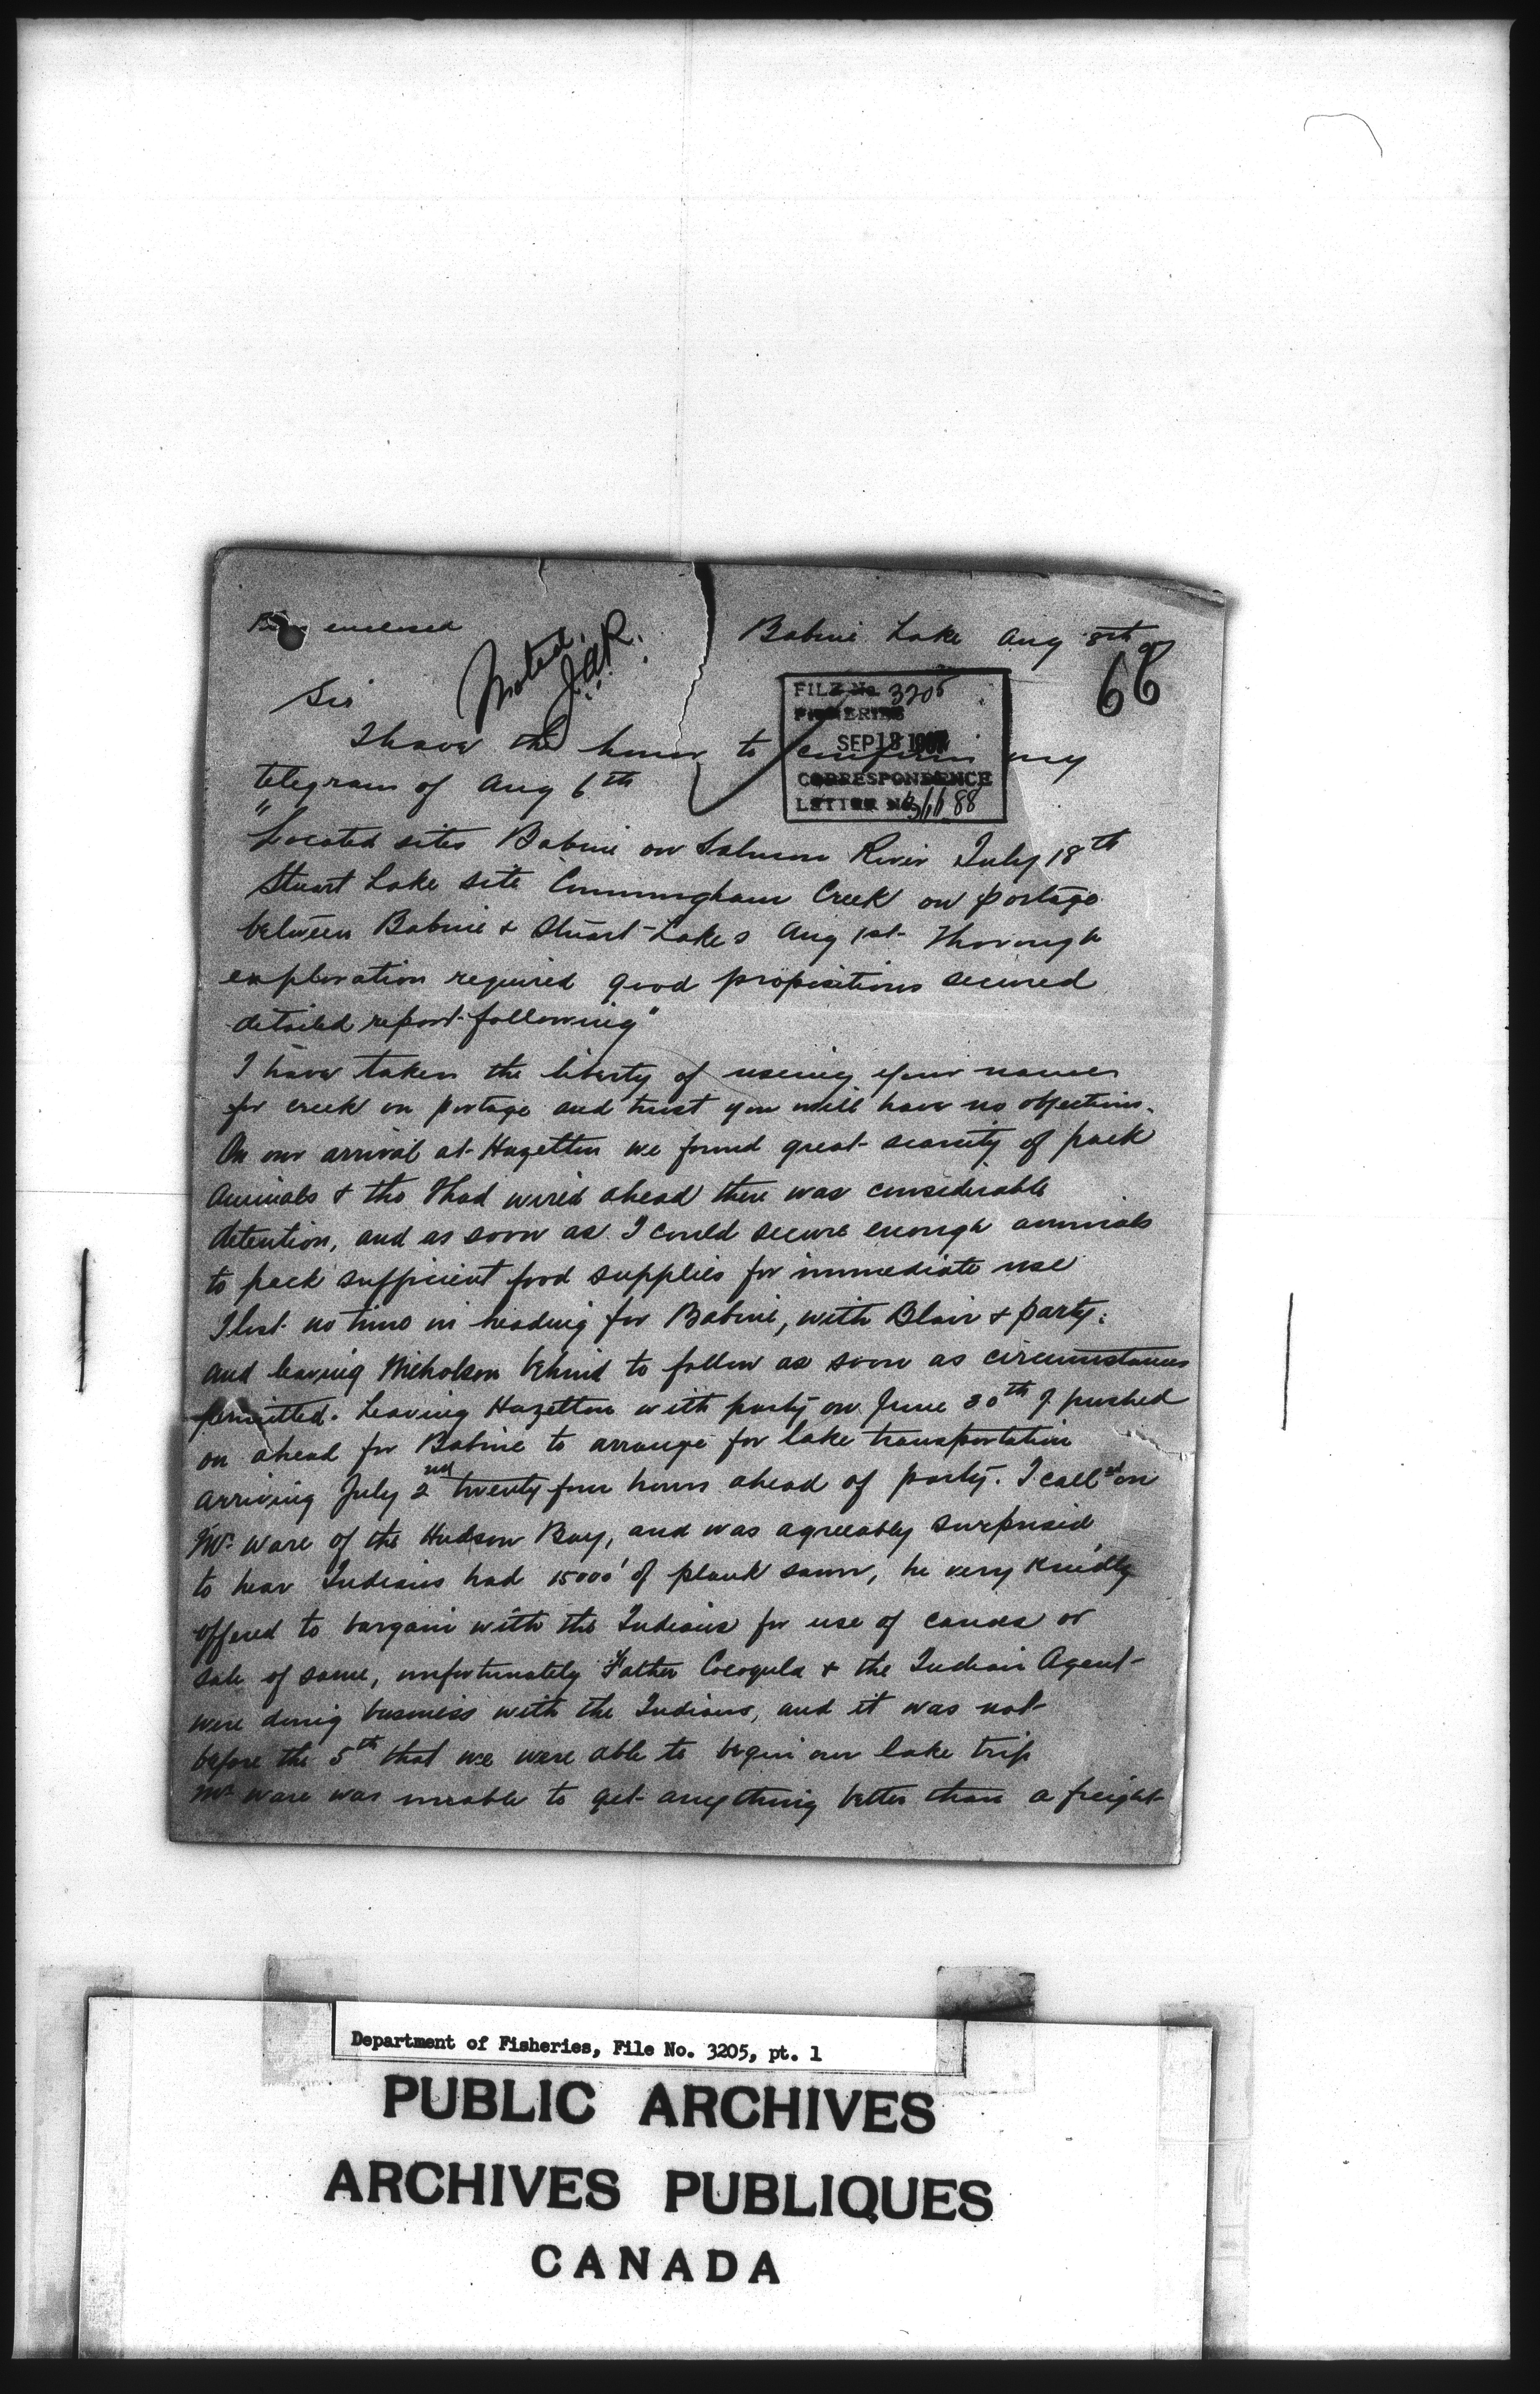 enclosed
Noted.
J.A.R.
Babine Lake Aug 8th
68
Sir
FILE No. 3205
FISHERIES
SEP 13
CORRESPONDENCE
LETTER No.
I have the honor to confirm my
telegram of Aug 6th
"Located sites Babine on Salmon River July 18th
Stuart Lake site Cunningham Creek on portage
between Babine & Stuart Lakes Aug 1st Thorough
exploration required good propositions secured
detailed report following"
I have taken the liberty of useing your name
for creek on portage and trust you will have no objections.
On our arrival at Hazelton we found great scarcity of pack
Animals & tho I had wired ahead there was considerable
detention, and as soon as I could secure enough animals
to pack sufficient food supplies for immediate use
I lost no time in heading for Babine, with Blair & party.
and leaving Nicholson behind to follow as soon as circumstances
permitted. Leaving Hazelton with party on June 30th I pushed
on ahead for Babine to arrange for lake transportation
arriving July 2nd twenty four hours ahead of party. I call'd on
Mr Ware of the Hudson Bay, and was agreeably surprised
to hear Indians had 15000' of plank sawn, he very kindly
offered to bargain with the Indians for use of canoes or
sale of same, unfortunately Father Cocogula & the Indian Agent
were doing business with the Indians, and it was not
before the 5th that we were able to begin our lake trip
Mr Ware was unable to get anything better than a freight
Department of Fisheries, File No. 3205, pt. 1
PUBLIC ARCHIVES
ARCHIVES PUBLIQUES
CANADA